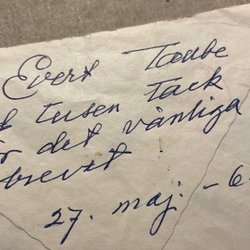 Evert Taube
tusen tack
det vänliga
brevet
27. maj. - 6